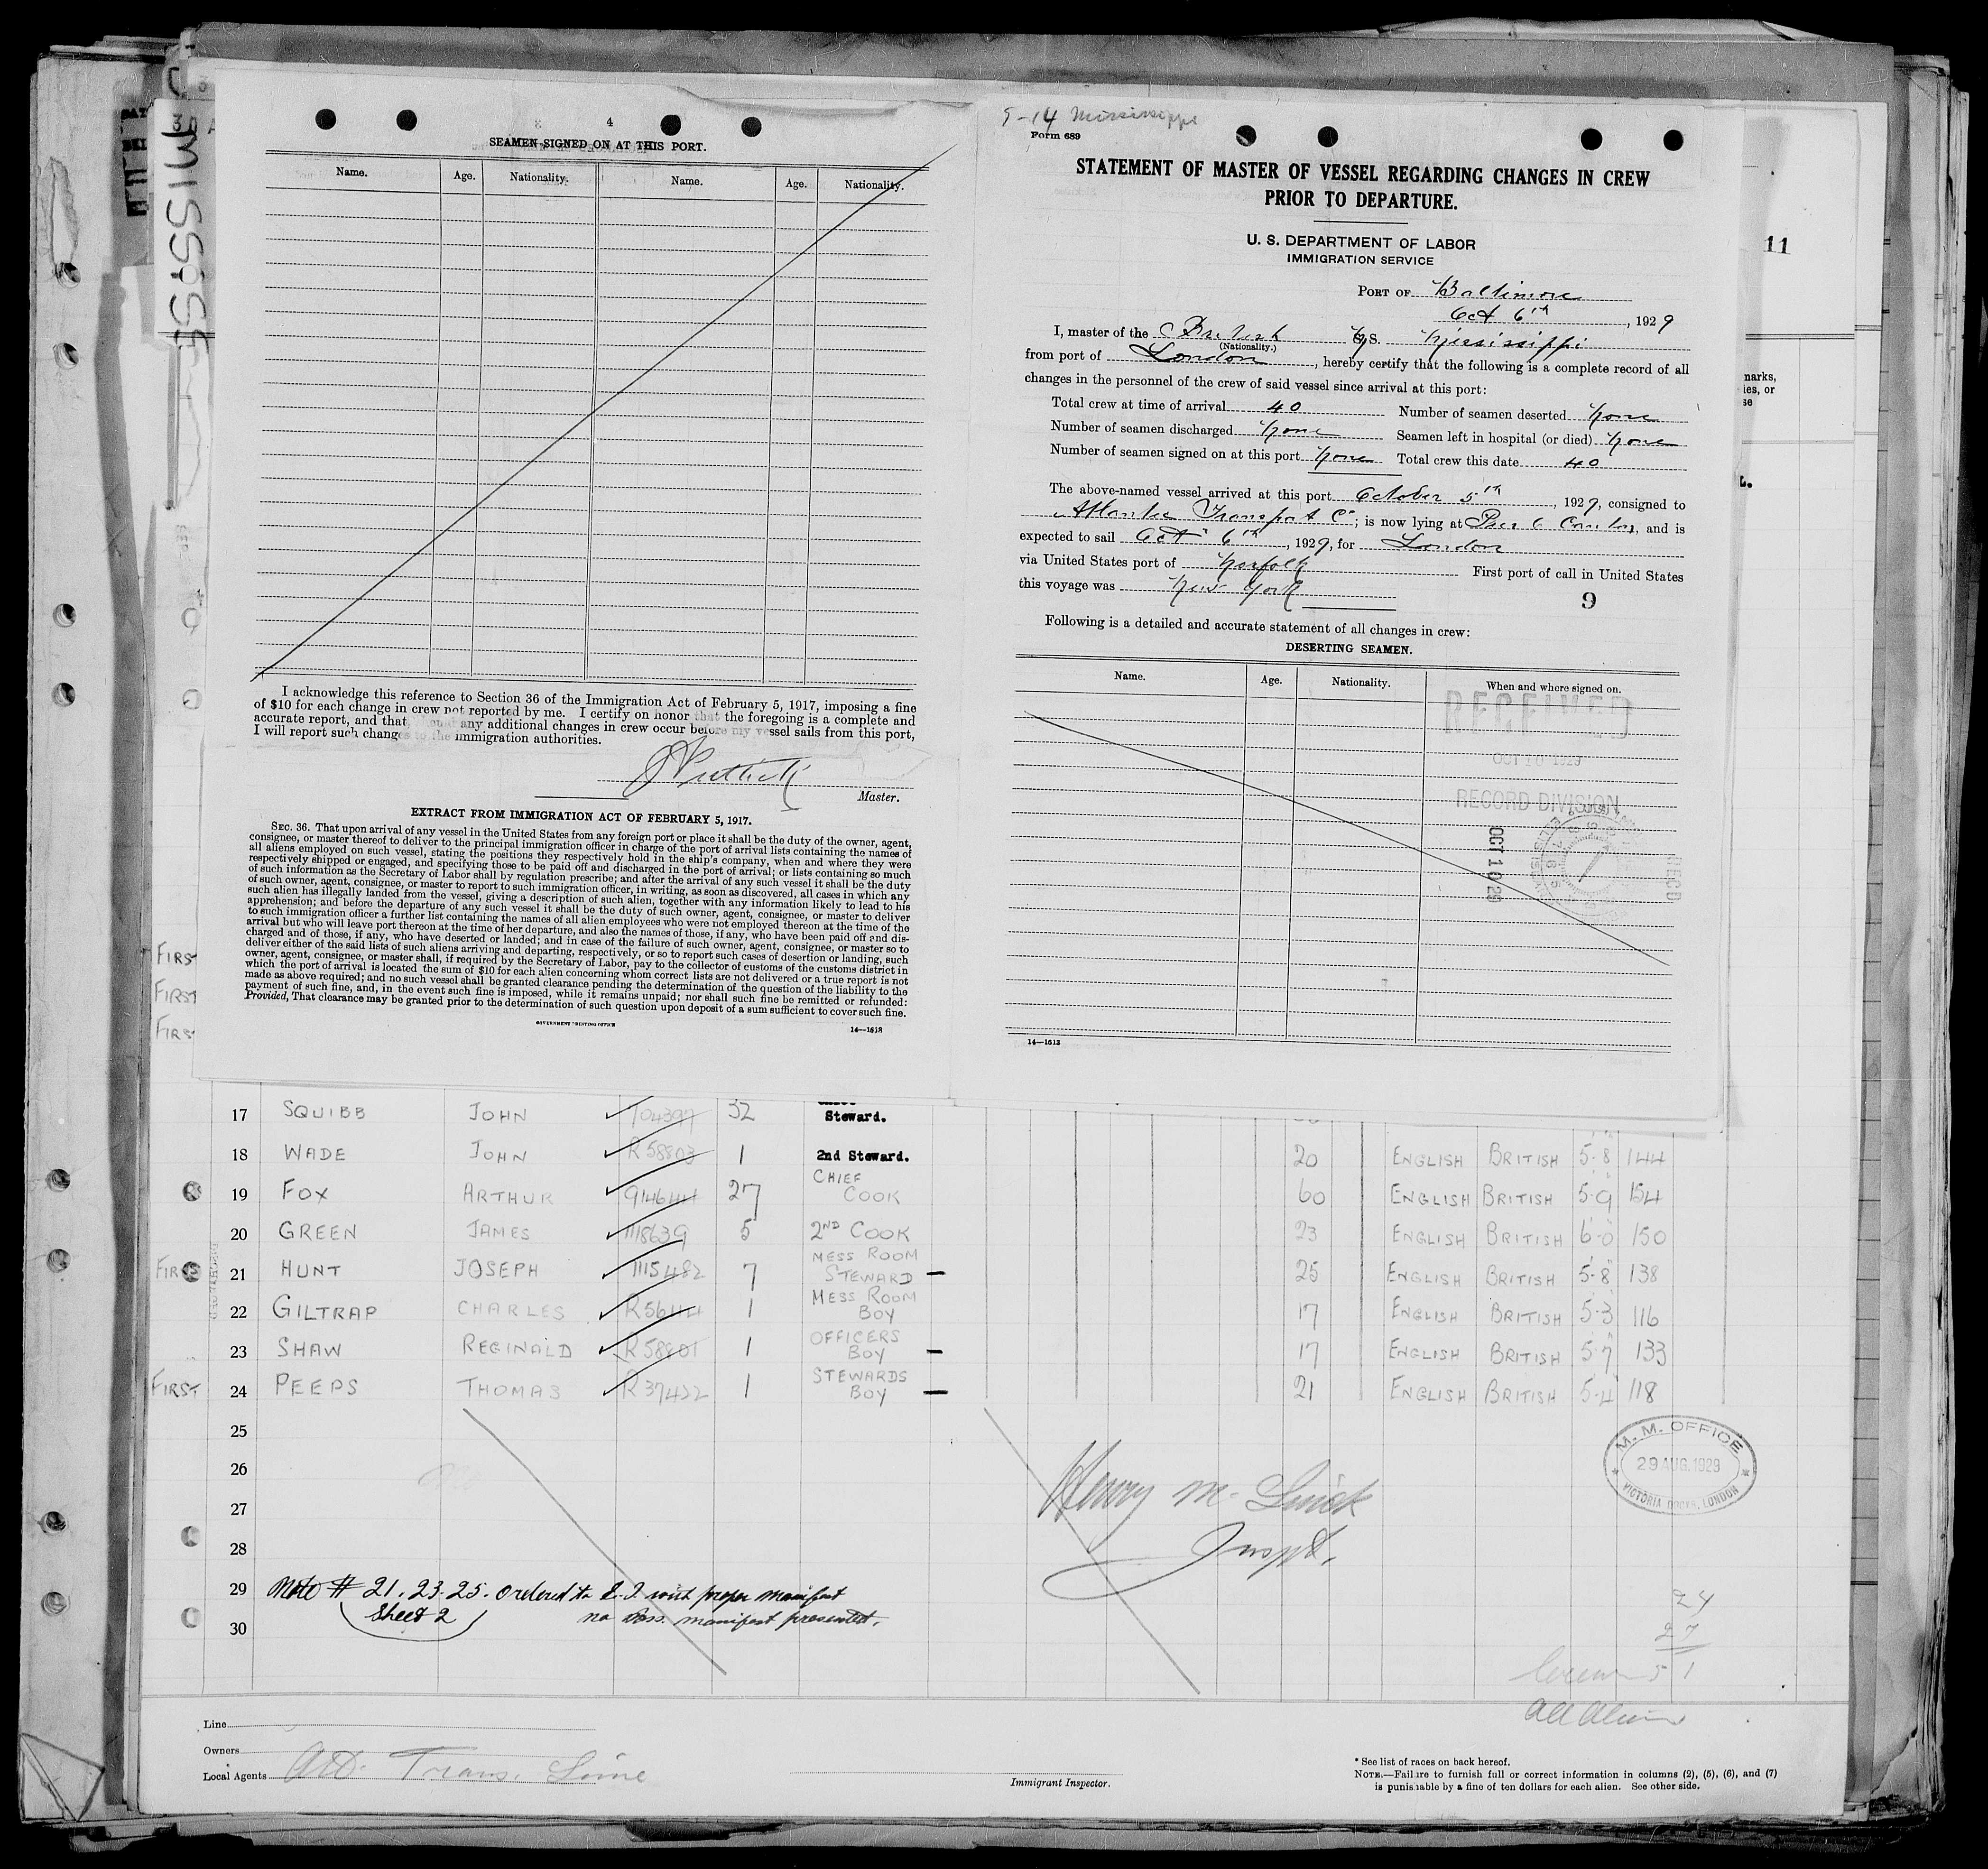 MISSISSI
4
SEAMEN SIGNED ON AT THIS PORT.
Name. Age. Nationality. Name. Age. Nationality.
I acknowledge this reference to Section 36 of the Immigration Act of February 5, 1917, imposing a fine
of $10 for each change in crew not reported by me. I certify on honor that the foregoing is a complete and
accurate report, and that, any additional changes in crew occur before my vessel sails from this port,
I will report such changes to the immigration authorities.
Master.
EXTRACT FROM IMMIGRATION ACT OF FEBRUARY 5, 1917.
SEC. 36. That upon arrival of any vessel in the United States from any foreign port or place it shall be the duty of the owner, agent,
consignee, or master thereof to deliver to the principal immigration officer in charge of the port of arrival lists containing the names of
all aliens employed on such vessel, stating the positions they respectively hold in the ship's company, when and where they were
respectively shipped or engaged, and specifying those to be paid off and discharged in the port of arrival; or lists containing so much
of such information as the Secretary of Labor shall by regulation prescribe; and after the arrival of any such vessel it shall be the duty
of such owner, agent, consignee, or master to report to such immigration officer, in writing, as soon as discovered, all cases in which any
such alien has illegally landed from the vessel, giving a description of such alien, together with any information likely to lead to his
apprehension; and before the departure of any such vessel it shall be the duty of such owner, agent, consignee, or master to deliver
to such immigration officer a further list containing the names of all alien employees who were not employed thereon at the time of the
arrival but who will leave port thereon at the time of her departure, and also the names of those, if any, who have been paid off and dis-
charged and of those, if any, who have deserted or landed; and in case of the failure of such owner, agent, consignee, or master so to
deliver either of the said lists of such aliens arriving and departing, respectively, or so to report such cases of desertion or landing, such
owner, agent, consignee, or master shall, if required by the Secretary of Labor, pay to the collector of customs of the customs district in
which the port of arrival is located the sum of $10 for each alien concerning whom correct lists are not delivered or a true report is not
made as above required; and no such vessel shall be granted clearance pending the determination of the question of the liability to the
payment of such fine, and, in the event such fine is imposed, while it remains unpaid; nor shall such fine be remitted or refunded:
Provided, That clearance may be granted prior to the determination of such question upon deposit of a sum sufficient to cover such fine.
GOVERNMENT PRINTING OFFICE 14—1613
5-14 Mississippi
Form 689
STATEMENT OF MASTER OF VESSEL REGARDING CHANGES IN CREW
PRIOR TO DEPARTURE.
U. S. DEPARTMENT OF LABOR
IMMIGRATION SERVICE
PORT OF Baltimore
Oct 6th, 1929
I, master of the British S. Mississippi
(Nationality.)
from port of London, hereby certify that the following is a complete record of all
changes in the personnel of the crew of said vessel since arrival at this port:
Total crew at time of arrival 40 Number of seamen deserted none
Number of seamen discharged none Seamen left in hospital (or died) none
Number of seamen signed on at this port none Total crew this date 40
The above-named vessel arrived at this port October 5th, 1929, consigned to
Atlantic Transport Co; is now lying at Pier 6 Canton, and is
expected to sail Oct 6th, 1929, for London
via United States port of Norfolk First port of call in United States
this voyage was New York
9
Following is a detailed and accurate statement of all changes in crew:
DESERTING SEAMEN.
Name. Age. Nationality. When and where signed on.
RECEIVED
OCT 10 1929
RECORD DIVISION
OCT 10 29
REC'D
14—1613
11
marks,
ies, or
se
L.
FIRST
FIRST
FIRST
17 SQUIBB JOHN 704397 32 Steward.
18 WADE JOHN R58803 1 2nd Steward. 20 ENGLISH BRITISH 5-8 144
19 FOX ARTHUR 914644 27 CHIEF COOK 60 ENGLISH BRITISH 5-9 154
20 GREEN JAMES 1118639 5 2ND COOK 23 ENGLISH BRITISH 6-0 150
FIRS 21 HUNT JOSEPH 1115482 7 MESS ROOM STEWARD — 25 ENGLISH BRITISH 5-8 138
22 GILTRAP CHARLES R5644 1 MESS ROOM BOY 17 ENGLISH BRITISH 5-3 116
23 SHAW REGINALD R58801 1 OFFICERS BOY — 17 ENGLISH BRITISH 5-7 133
FIRST 24 PEEPS THOMAS R37422 1 STEWARDS BOY — 21 ENGLISH BRITISH 5-4 118
25
26
27
28
29
30
M. M. OFFICE
29 AUG. 1929
VICTORIA DOCKS, LONDON
Henry M. Quick
Inspt.
Note # 21. 23. 25. ordered to E. I. with proper manifest
Sheet 2 no pass. manifest presented.
24
27
51
All Aliens
Line
Owners
Local Agents Atl. Trans. Line
Immigrant Inspector.
* See list of races on back hereof.
NOTE.—Failure to furnish full or correct information in columns (2), (5), (6), and (7)
is punishable by a fine of ten dollars for each alien. See other side.